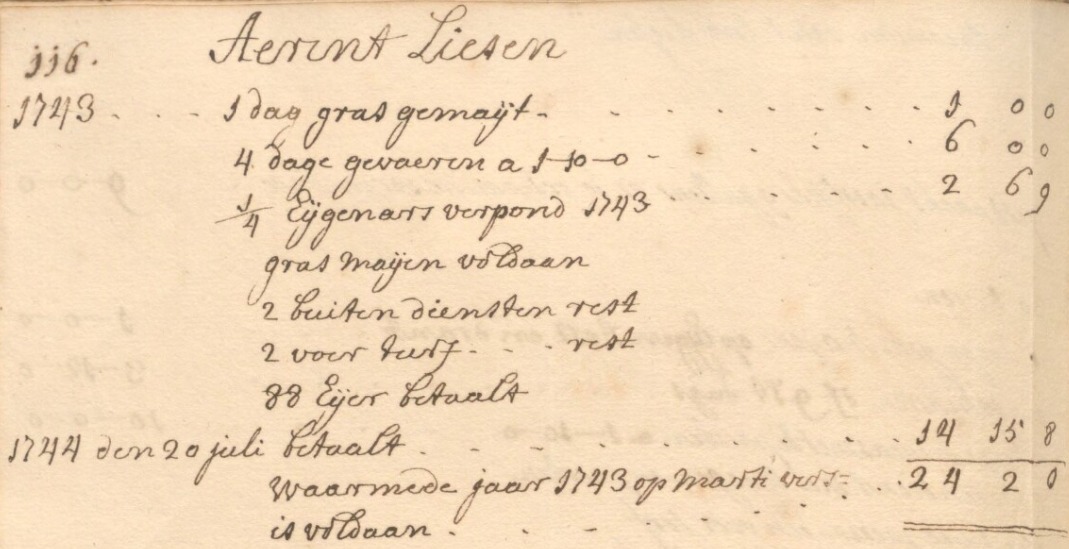 116. Aerent Liesen
1743 - - - 1 dag gras gemaÿt - - - - - - - 1 0 0
4 dage gevaeren a 1-10-0 - - - - - - 6 0 0
1/4 Eÿgenars verpond 1743 - - - 2 6 9
gras maÿen voldaan
2 buiten diensten rest
2 voer turf - - - rest
88 Eÿer betaalt
1744 den 20 juli betaalt - - - - - - - - 14 15 8
waarmede jaar 1743 op marti vers= - - 24 2 0
is voldaan - - - - -